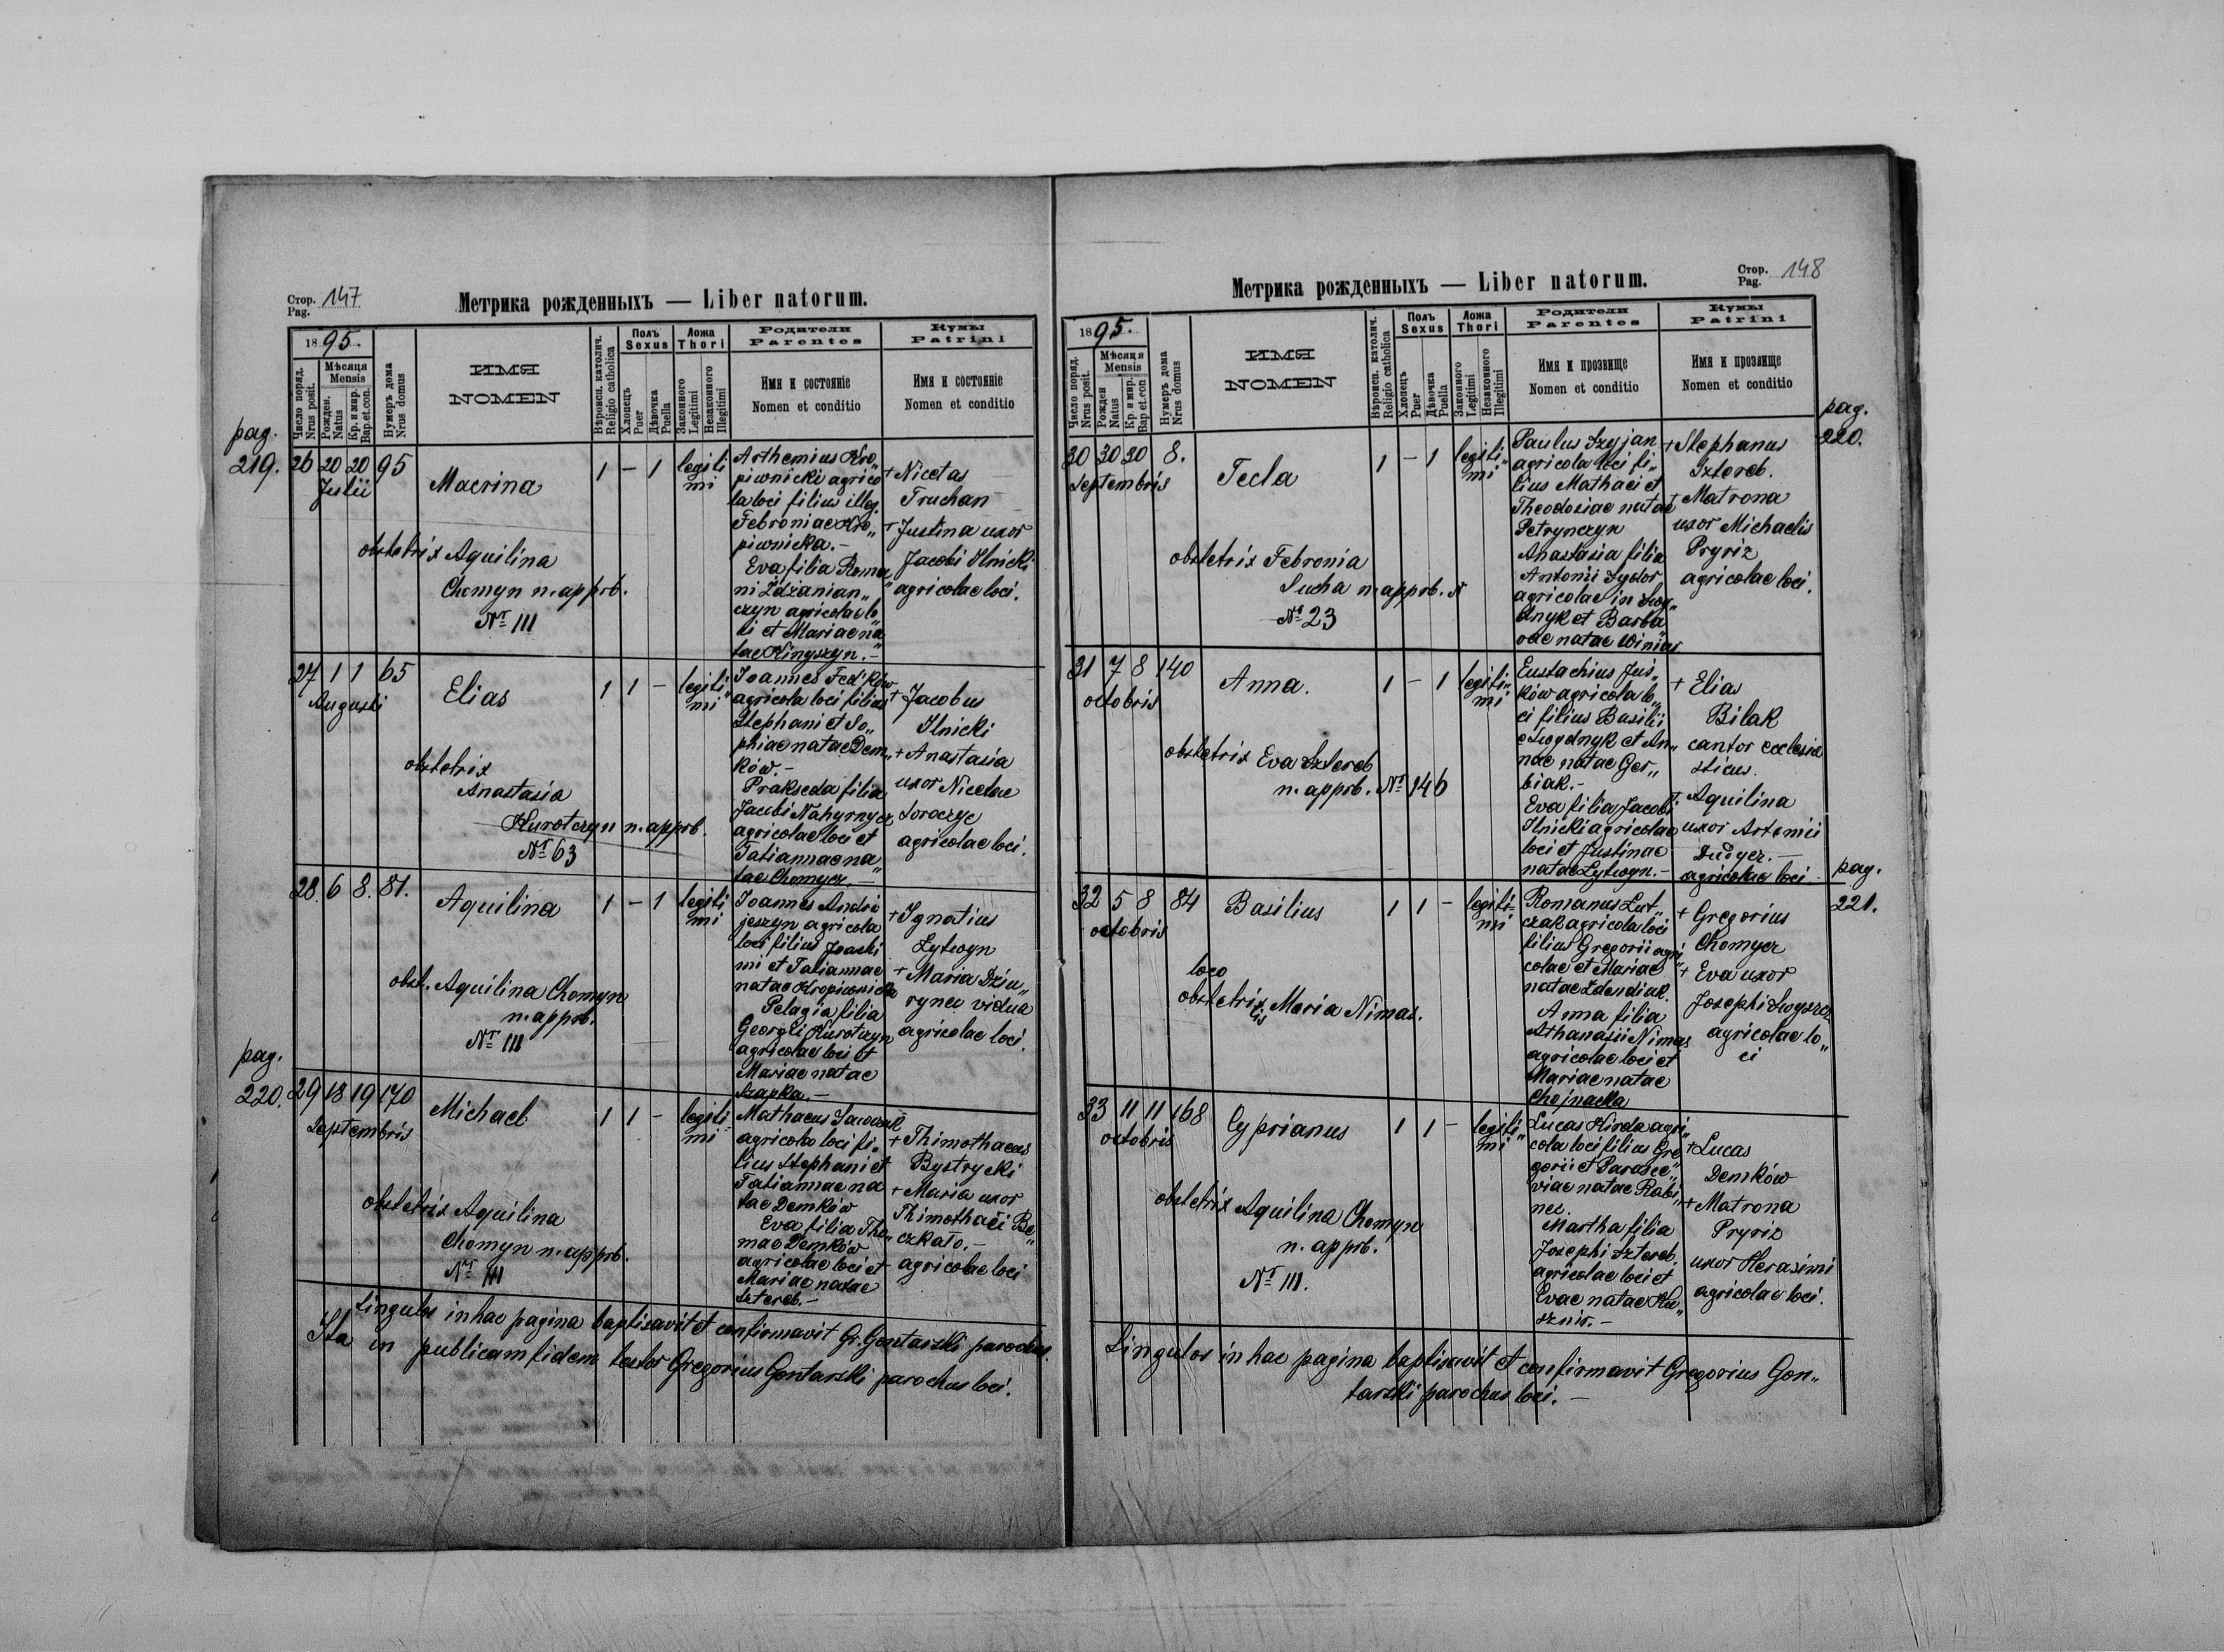 Стор. 147
Pag.
Метрика рожденныхъ — Liber natorum.
1895.
Число поряд.
Nrus posit.
Мѣсяця
Mensis
Рожден.
Natus
Кр. и мир.
Bap. et con.
Нумеръ дома
Nrus domus
ИМЯ
NOMEN
Вѣроисп. католич.
Religio catholica
Полъ
Sexus
Хлопецъ
Puer
Дѣвочка
Puella
Ложа
Thori
Законного
Legitimi
Незаконного
Illegitimi
Родители
Parentes
Имя и состояніе
Nomen et conditio
Кумы
Patrini
Имя и состояніе
Nomen et conditio
pag.
219.
26 20 20 95
Julii
Macrina
1 – 1
legiti
mi
obstetrix Aquilina
Chomyn n. approb.
Nr 111
Arthemius Kro„
piwnicki agrico
la loci filius illeg.
Febroniae Kro„
piwnicka.–
Eva filia Roma„
ni Zdzanian„
czyn agricolae lo„
ci et Mariae na„
tae Kingszyn.–
+ Nicetas
Truchan
+ Justina uxor
Jacobi Ilnicki
agricolae loci.
27 1 1 65
Augusti
Elias
1 1 –
legiti„
mi
obstetrix
Anastasia
Kurotczyn n. approb.
Nr 63
Joannes Fed'ków
agricola loci filius
Stephani et So„
phiae natae Dem„
ków.–
Prakseda filia
Jacobi Nahyrnycz
agricolae loci et
Tatiannae na„
tae Chomycz.–
+ Jacobus
Ilnicki
+ Anastasia
uxor Nicetae
Soroczyc
agricolae loci.
28. 6 8. 81.
Aquilina
1 – 1
legiti
mi
obst. Aquilina Chomyn
n. approb.
Nr 111
Joannes Andri
jeszyn agricola
loci filius Joachi
mi et Tatiannae
natae Kropiwnicka
Pelagia filia
Georgii Kurotczyn
agricolae loci et
Mariae natae
Szapka.–
+ Ignatius
Lytwyn
+ Maria Dziu„
rynec vidua
agricolae loci.
pag.
220.
29 18 19 170
Septembris
Michael
1 1 –
legiti
mi
obstetrix Aquilina
Chomyn n. approb.
Nr 111
Mathaeus
agricola loci fi„
lius Stephani et
Tatiannae na
tae Demków
Eva filia Tho„
mae Demków
agricolae loci et
Mariae natae
Sztereb.–
+ Thimothaeus
Bystrycki
+ Maria uxor
Thimothaei Be„
czkało.–
agricolae loci
Singulos in hac pagina baptisavit et confirmavit Gr. Gontarski parochus.
Ita in publicam fidem testor Gregorius Gontarski parochus loci.
Стор. 148
Pag.
Метрика рожденныхъ — Liber natorum.
1895.
Число поряд.
Nrus posit.
Мѣсяця
Mensis
Рожден
Natus
Кр. и мир.
Bap. et con
Нумеръ дома
Nrus domus
ИМЯ
NOMEN
Вѣроисп. католич.
Religio catholica
Полъ
Sexus
Хлопецъ
Puer
Дѣвочка
Puella
Ложа
Thori
Законного
Legitimi
Незаконного
Illegitimi
Родители
Parentes
Имя и прозвище
Nomen et conditio
Кумы
Patrini
Имя и прозвище
Nomen et conditio
pag.
220.
30 30 30 8.
Septembris
Tecla
1 – 1
legiti„
mi
obstetrix Febronia
Sucha n. approb. N
Nr 23
Paulus Szyjan
agricola loci fi„
lius Mathaei et
Theodosiae natae
Petrynczyn
Anastasia filia
Antonii Sydor
agricolae in Swy„
dnyk et Barba
rae natae Winiar
+ Stephanus
Sztereb.
+ Matrona
uxor Michaelis
Pryriz
agricolae loci.
31 7 8 140
octobris
Anna.
1 – 1
legiti„
mi
obstetrix Eva Sztereb
n. approb. Nr 146
Eustachius Jus„
ków agricola lo„
ci filius Basilii
e Swydnyk et An„
nae natae Ger„
biak.–
Eva filia Jacobi
Ilnicki agricolae
loci et Justinae
natae Lytwyn.–
+ Elias
Bilak
cantor ecclesia
sticus.
+ Aquilina
uxor Artemii
Dudycz.–
agricolae loci.
pag.
221.
32 5 8 84
octobris
Basilius
1 1 –
legiti=
mi
loco
obstetricis Maria Nimas.
Romanus Lut„
czak agricola loci
filius Gregorii agri„
colae et Mariae
natae Zdendiak.
Anna filia
Athanasii Nimas
agricolae loci et
Mariae natae
Chojnacka
+ Gregorius
Chomycz
+ Eva uxor
Josephi
agricolae lo„
ci
33 11 11 168
octobris
Cyprianus
1 1 –
legiti„
mi
obstetrix Aquilina Chomyn
n. approb.
Nr 111.
Lucas Kirda agri„
cola loci filius Gre
gorii et Parasce„
viae natae Rabi„
nec.
Martha filia
Josephi Sztereb.
agricolae loci et
Evae natae Ku„
sznir.–
+ Lucas
Demków
+ Matrona
Pryriz
uxor Herasimi
agricolae loci.
Singulos in hac pagina baptisavit et confirmavit Gregorius Gon„
tarski parochus loci.–